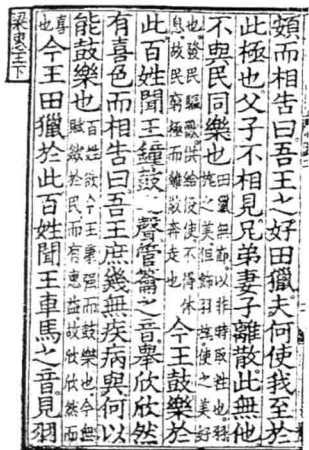 頞而相告曰吾王之好田獵夫何使我至於
此極也父子不相見兄弟妻子離散此無他
不與民同樂也田獵無節以非時取牲也羽
旄之美但飾羽旄使之美好
也發民驅獸供給役使不得休
息故民窮極而離散奔走也今王鼓樂於
此百姓聞王鐘鼓之聲管籥之音舉欣欣然
有喜色而相告曰吾王庶幾無疾病與何以
能鼓樂也百姓欲令王康強而鼓樂也今無
賦斂於民而有惠益故欣欣然而
喜也今王田獵於此百姓聞王車馬之音見羽
梁惠王下